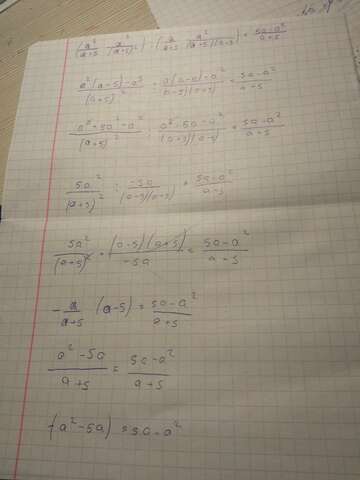 (a²/(a+5) - a³/(a+5)²) : (a/(a+5) - a²/((a+5)(a-5))) = (5a-a²)/(a+5)
(a²(a+5)-a³)/(a+5)² : (a(a-5)-a²)/((a-5)(a+5)) = (5a-a²)/(a+5)
(a³-5a²-a³)/(a+5)² : (a²-5a-a²)/((a+5)(a-5)) = (5a-a²)/(a+5)
5a²/(a+5)² : -5a/((a-5)(a+5)) = (5a-a²)/(a-5)
5a²/(a+5)² · ((a-5)(a+5))/(-5a) = (5a-a²)/(a-5)
- a/(a+5) (a-5) = (5a-a²)/(a+5)
(a²-5a)/(a+5) = (5a-a²)/(a+5)
-(a²-5a) = 5a-a²